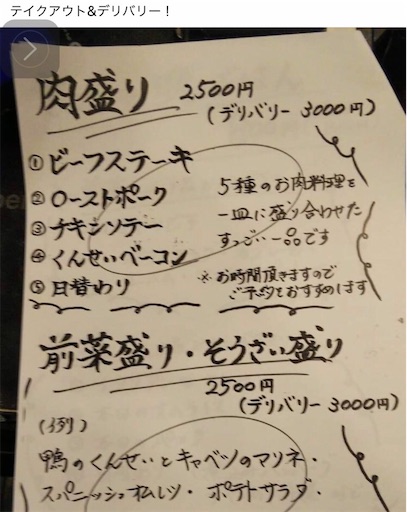 テイクアウト&デリバリー！
肉盛り 2500円
(デリバリー 3000円)
① ビーフステーキ
② ローストポーク
③ チキンソテー
④ くんせいベーコン
⑤ 日替わり
5種のお肉料理を
一皿に盛り合わせた
すっごい一品です
※お時間頂きますので
ご予約をおすすめします
前菜盛り・そうざい盛り
2500円
(デリバリー 3000円)
(例)
鴨のくんせいとキャベツのマリネ・
スパニッシュオムレツ・ポテトサラダ・